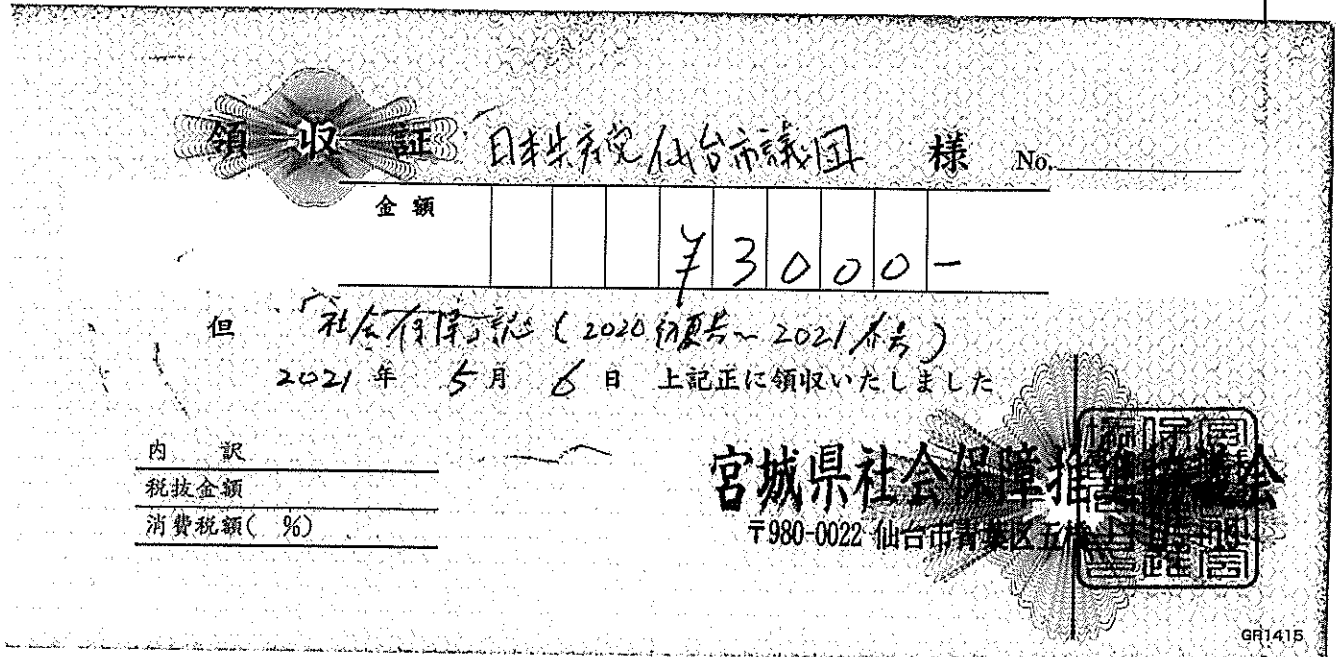 領収証 日本共産党仙台市議団 様 No.
金額
¥3000-
但 「社会保障」誌(2020初夏号~2021春号)
2021年 5月 6日 上記正に領収いたしました
内 訳
税抜金額
消費税額( %)
宮城県社会保障推進協議会
〒980-0022 仙台市青葉区五橋
GR1415